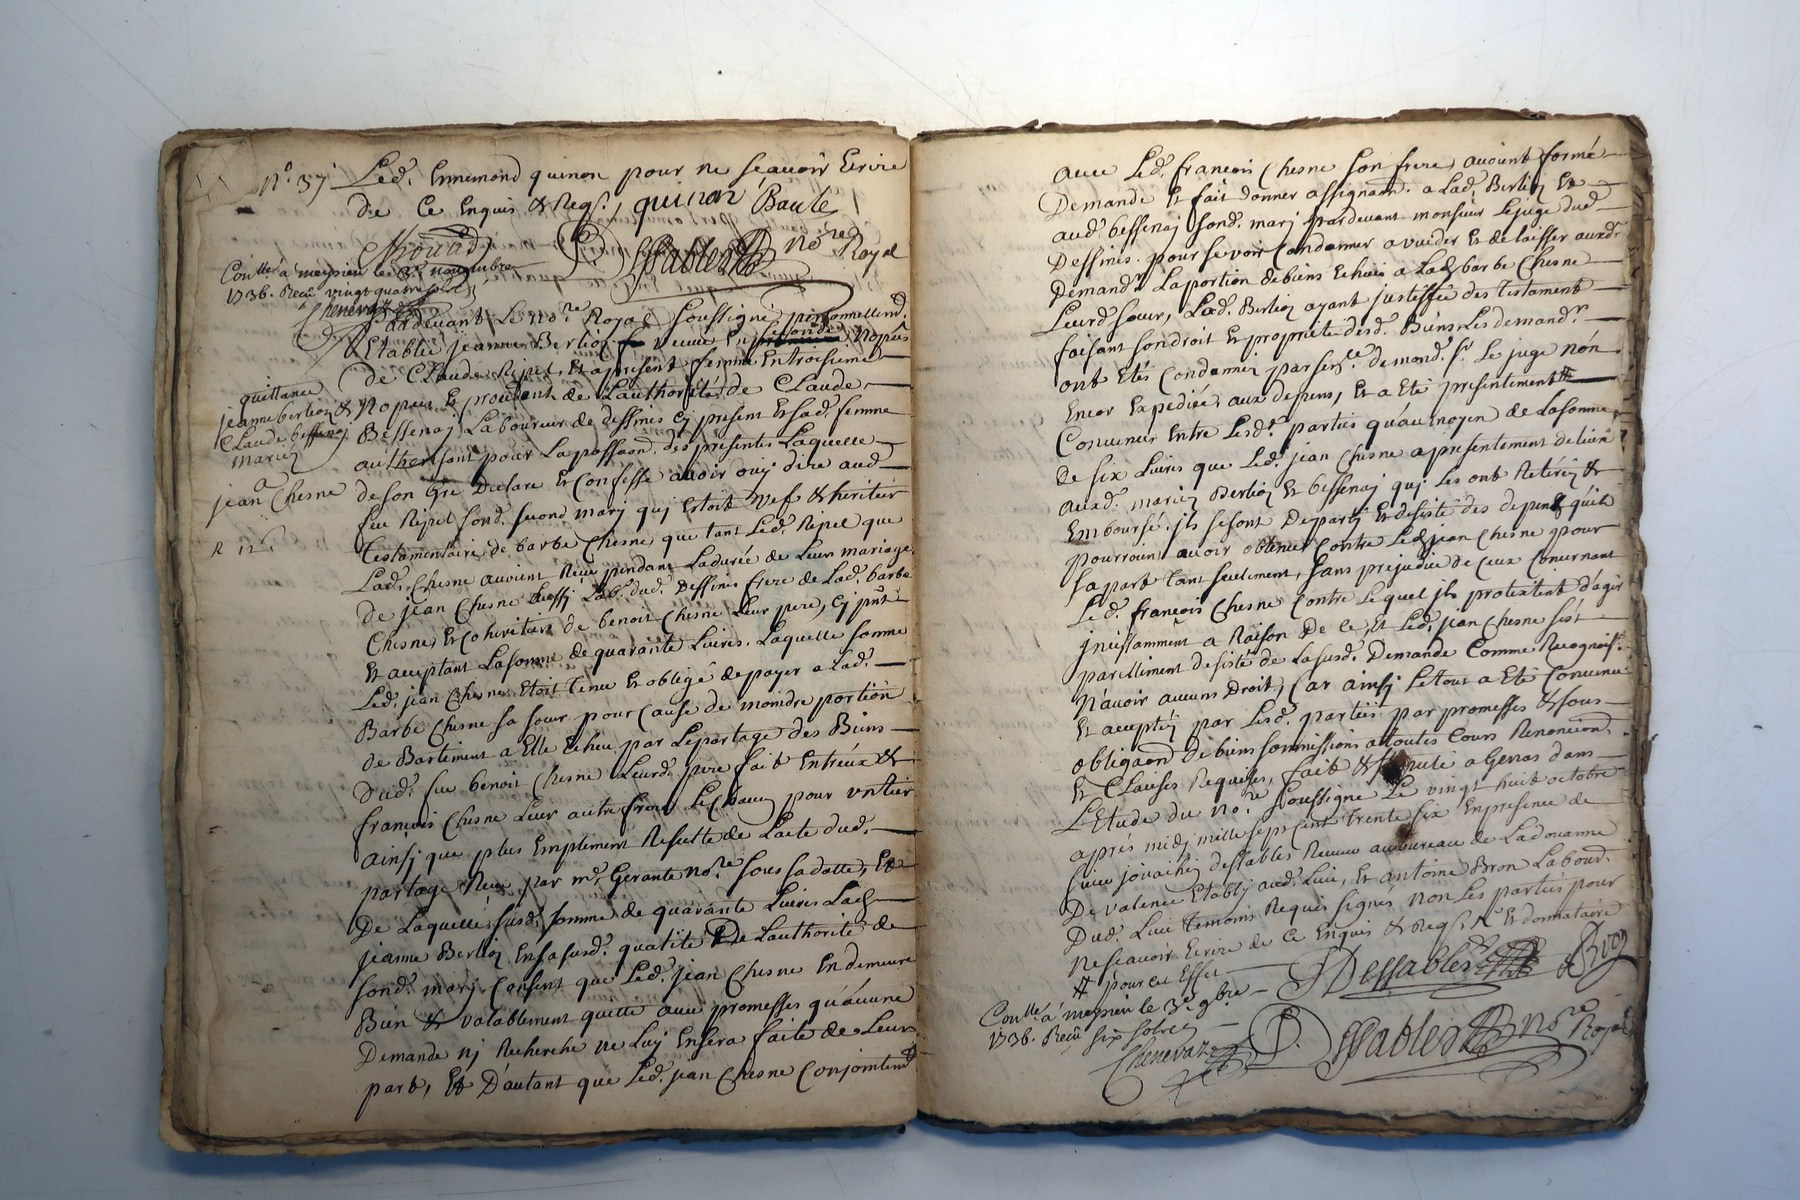 N.º 37 Led. Ennemond quinon pour ne scavoir Ecrire
de Ce Enquis & Reqs. quinon Baule
Dessables No.re Royal
Con.llé a meysieu le 3.e novembre
1736. Recu vingt quatre sols
Chenevaz
Pardevant Le No.re Royal soussigné personnellem.t
Etablie jeanne Berlioz veuve En seconde Nopces
de Claude Ripet, Et apresent femme En troisieme
quittance
jeanne berlioz &
Claude bessenay
mariez
a
jean Chesne
R 12 s
Nopces Et procedant de Lauthorité de Claude
Bessenay Laboureur de dessines Cy present Et sad. femme
authorisant pour La passaon des presentes Laquelle
de son Gré Declare Et Confesse avoir ouy dire aud.
feu Ripet sond. second mary quj Estoit vef & heritier
Testamentaire de barbe Chesne, que tant Led. Ripet que
Lad. Chesne avoient Receu pendant La durée de Leur mariage
de jean Chesne aussy Lab.r dud. Dessines frere de Lad. barbe
Chesne, Et Coheritiers de benoit Chesne Leur pere, Cy pnt
Et acceptant La somme de quarante Livres. Laquelle somme
Led. jean Chesne Etoit Tenu Et obligé de payer a Lad.
Barbe Chesne sa sœur pour Cause de moindre portion
de Bastiment a Elle Echeu par Le partage des Biens
dud. feu benoit Chesne Leurd. pere fait Entreux &
francois Chesne Leur autre frere Lechacun pour untier
ainsy que plus Emplement Resulte de Lacte dud.
partage Receu par m.e Gerante No.re sous sa datte, Et
De Laquelle susd. somme de quarante Livres Lad.
jeanne Berlioz En sa susd. qualité De Lauthorité de
sond. mary Consent que Led. jean Chesne En demeure
Bien & valablement quitte avec promesses qu'aucune
Demande nj Recherche ne Luy En sera faite de Leur
part, Et D'autant que Led. jean Chesne Conjointem.t
avec Led. francois Chesne son frere, avoient formé
Demande Et fait donner assignaon. a Lad. Berlioz Et
aud. bessenay sond. mary pardevant monsieur Le juge dud.
Dessines. pour se voir Condamner a vuider Et delaisser auxd.
Demand.rs La portion de biens Echuës a Lad. barbe Chesne
Leurd. sœur, Lad. Berlioz ayant justiffié des Testament
faisant son droit Et proprieté desd. Biens Les demand.rs
ont Etés Condamnez par sen.ce de mond. sr. Le juge non
Encor Expediée, aux depens, Et a Eté presentement #
Convenu Entre Lesd. parties qu'au moyen de La somme
de six Livres que Led. jean Chesne a presentement delivré
auxd. mariez Berlioz Et bessenay quj Les ont Retirez &
Emboursé. jls se sont Departy Et desisté des depens qu'ils
pourroint avoir obtenus Contre Led. jean Chesne pour
sa part Tant seulement, sans prejudice de Ceux Concernant
Led. francois Chesne Contre Lequel jls protestent d'agir
jncessamment a Raison De Ce, Et Led. jean Chesne s'est
pareillement desisté de La susd. Demande Comme Recognoiss.t
n'avoir aucuns Droit, Car ainsy Le tout a Eté Convenu
Et acceptéz par Lesd. parties par promesses & sous
obligaon De biens sommissions a toutes Cours Renonciaon.
Et Clauses Requises, fait & à Genas dans
L'Etude du No.re soussigné Le vingt huit octobre
aprés midj mille sept Cent trente six En presence de
sieur jouachin dessables Receveur au bureau de La douanne
De valence Etably aud. Lieu, Et antoine Bron Labour.
Dud. Lieu Temoins Requis signés non Les parties pour
Ne scavoir Ecrire de Ce Enquis & Reqs.
# pour cet Effet
JDessables Bron
Con.llé a meysieu le 3.e 9bre
1736. Recu six sols
Chenevaz
Dessables No.re Royal